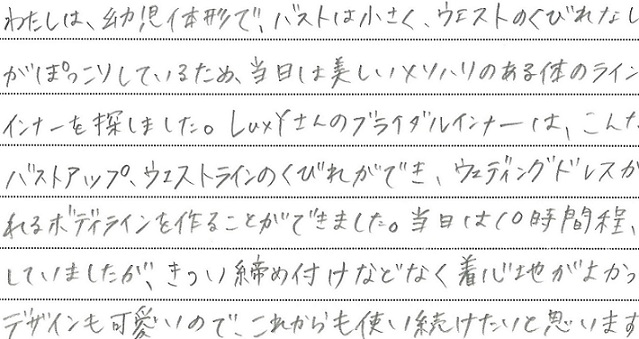 わたしは、幼児体形で、バストは小さく、ウエストのくびれなし
がぽっこりしているため、当日は美しいメリハリのある体のライン
インナーを探しました。LuxYさんのブライダルインナーは、こんた
バストアップ、ウエストラインのくびれができ、ウェディングドレスが
れるボディラインを作ることができました。当日は10時間程、
していましたが、きつい締め付けなどなく着心地がよかっ
デザインも可愛いので、これからも使い続けたいと思います